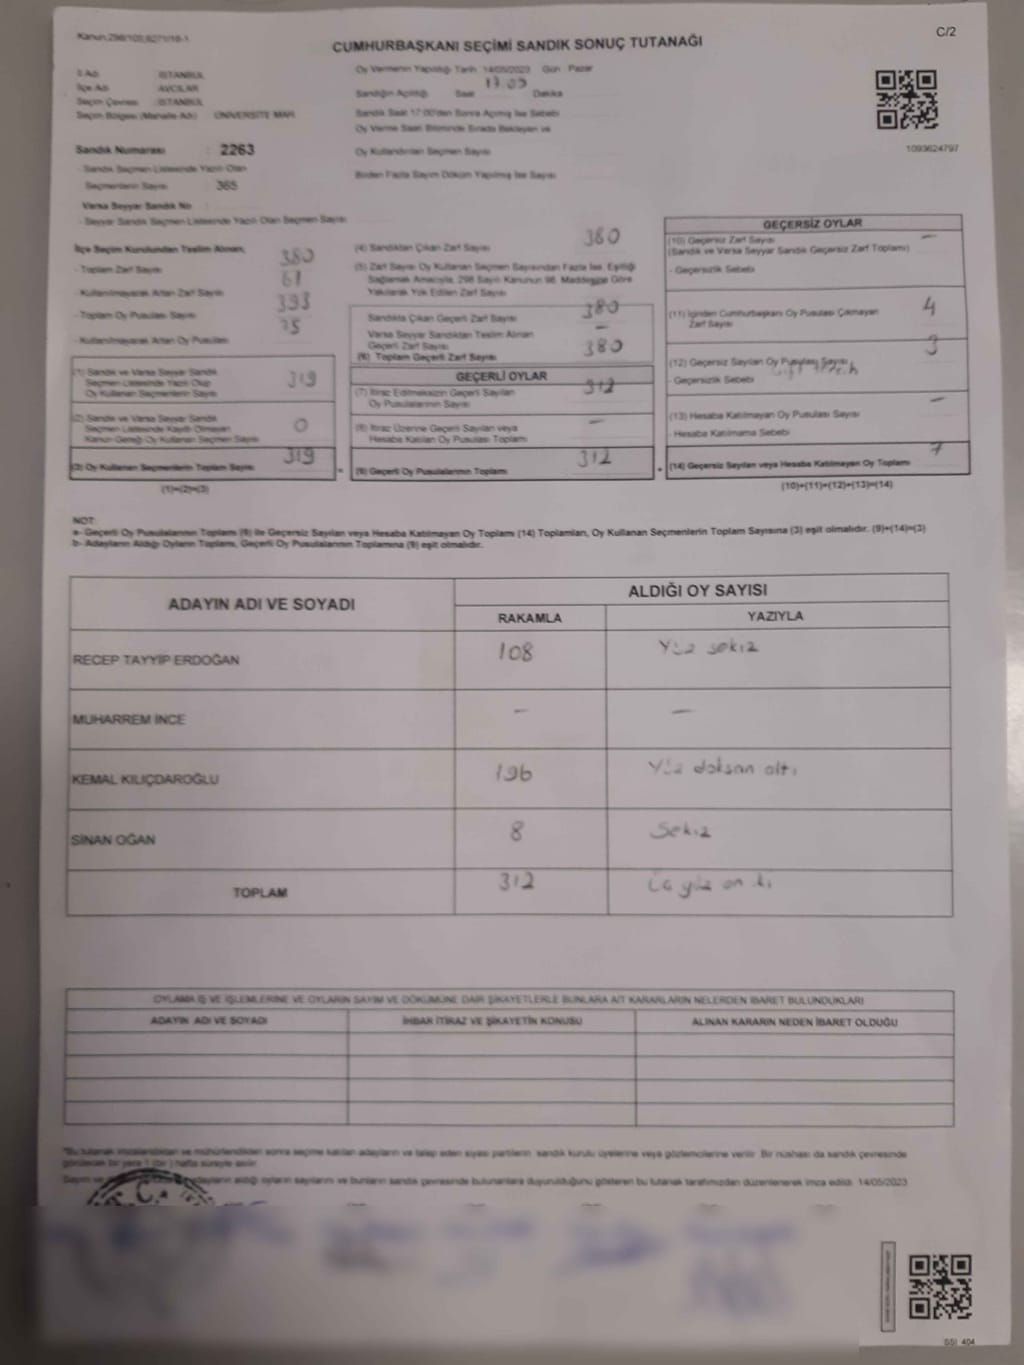 Kanun:298/105,6271/18-1
C/2
CUMHURBAŞKANI SEÇİMİ SANDIK SONUÇ TUTANAĞI
İl Adı : İSTANBUL
İlçe Adı : AVCILAR
Seçim Çevresi : İSTANBUL
Seçim Bölgesi (Mahalle Adı) : ÜNİVERSİTE MAH.
Oy Vermenin Yapıldığı Tarih : 14/05/2023 Gün : Pazar
Sandığın Açıldığı Saat 17.05 Dakika
Sandık Saat 17:00'den Sonra Açılmış İse Sebebi
Oy Verme Saati Bitiminde Sırada Bekleyen ve
Oy Kullandırılan Seçmen Sayısı
Birden Fazla Sayım Döküm Yapılmış İse Sayısı
1093624797
Sandık Numarası : 2263
- Sandık Seçmen Listesinde Yazılı Olan
Seçmenlerin Sayısı : 365
Varsa Seyyar Sandık No
- Seyyar Sandık Seçmen Listesinde Yazılı Olan Seçmen Sayısı
İlçe Seçim Kurulundan Teslim Alınan;
- Toplam Zarf Sayısı 380
- Kullanılmayarak Artan Zarf Sayısı 61
- Toplam Oy Pusulası Sayısı 393
- Kullanılmayarak Artan Oy Pusulası 75
(1) Sandık ve Varsa Seyyar Sandık
Seçmen Listesinde Yazılı Olup
Oy Kullanan Seçmenlerin Sayısı 319
(2) Sandık ve Varsa Seyyar Sandık
Seçmen Listesinde Kayıtlı Olmayan
Kanun Gereği Oy Kullanan Seçmen Sayısı 0
(3) Oy Kullanan Seçmenlerin Toplam Sayısı 319
(1)+(2)=(3)
(4) Sandıktan Çıkan Zarf Sayısı 380
(5) Zarf Sayısı Oy Kullanan Seçmen Sayısından Fazla İse, Eşitliği
Sağlamak Amacıyla, 298 Sayılı Kanunun 98. Maddesine Göre
Yakılarak Yok Edilen Zarf Sayısı
Sandıkta Çıkan Geçerli Zarf Sayısı 380
Varsa Seyyar Sandıktan Teslim Alınan
Geçerli Zarf Sayısı -
(6) Toplam Geçerli Zarf Sayısı 380
GEÇERLİ OYLAR
(7) İtiraz Edilmeksizin Geçerli Sayılan
Oy Pusulalarının Sayısı 312
(8) İtiraz Üzerine Geçerli Sayılan veya
Hesaba Katılan Oy Pusulası Toplamı -
(9) Geçerli Oy Pusulalarının Toplamı 312
GEÇERSİZ OYLAR
(10) Geçersiz Zarf Sayısı
(Sandık ve Varsa Seyyar Sandık Geçersiz Zarf Toplamı) -
- Geçersizlik Sebebi
(11) İçinden Cumhurbaşkanı Oy Pusulası Çıkmayan
Zarf Sayısı 4
(12) Geçersiz Sayılan Oy Pusulası Sayısı 3
- Geçersizlik Sebebi
(13) Hesaba Katılmayan Oy Pusulası Sayısı -
- Hesaba Katılmama Sebebi
(14) Geçersiz Sayılan veya Hesaba Katılmayan Oy Toplamı 7
(10)+(11)+(12)+(13)=(14)
NOT:
a- Geçerli Oy Pusulalarının Toplamı (9) ile Geçersiz Sayılan veya Hesaba Katılmayan Oy Toplamı (14) Toplamları, Oy Kullanan Seçmenlerin Toplam Sayısına (3) eşit olmalıdır. (9)+(14)=(3)
b- Adayların Aldığı Oyların Toplamı, Geçerli Oy Pusulalarının Toplamına (9) eşit olmalıdır.
ADAYIN ADI VE SOYADI
ALDIĞI OY SAYISI
RAKAMLA YAZIYLA
RECEP TAYYİP ERDOĞAN 108 Yüz sekiz
MUHARREM İNCE - -
KEMAL KILIÇDAROĞLU 196 Yüz doksan altı
SİNAN OĞAN 8 Sekiz
TOPLAM 312 Üç yüz on iki
OYLAMA İŞ VE İŞLEMLERİNE VE OYLARIN SAYIM VE DÖKÜMÜNE DAİR ŞİKAYETLERLE BUNLARA AİT KARARLARIN NELERDEN İBARET BULUNDUKLARI
ADAYIN ADI VE SOYADI İHBAR İTİRAZ VE ŞİKAYETİN KONUSU ALINAN KARARIN NEDEN İBARET OLDUĞU
*Bu tutanak imzalandıktan ve mühürlendikten sonra seçime katılan adayların ve talep eden siyasi partilerin, sandık kurulu üyelerine veya gözlemcilerine verilir. Bir nüshası da sandık çevresinde
görülecek bir yere 1 (bir) hafta süreyle asılır.
Sayım ve adayların aldığı oyların sayılarını ve bunların sandık çevresinde bulunanlara duyurulduğunu gösteren bu tutanak tarafımızdan düzenlenerek imza edildi. 14/05/2023
T.C.
SSI 404